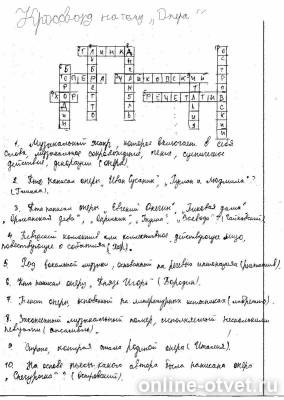 Кроссворд на тему „Опера"
ГЛИНКА
ОПЕРА ЧАЙКОВСКИЙ
ХОР РЕЧЕТАТИВ
1. Музыкальный жанр, который включает в себя
слова, музыкальное сопровождение, пение, сценическое
действие, декорации (опера).
2. Кто написал оперы „Иван Сусанин", „Руслан и Людмила"?
(Глинка).
3. Кто написал оперы „Евгений Онегин", „Пиковая дама"
„Орлеанская дева", „Иоланта", „Воевода" (Чайковский)
4. Певческий коллектив или коллективное действующее лицо,
повествующее о событиях (хор).
5. Род вокальной музыки, основанной на речевых интонациях (речитатив).
6. Кто написал оперу „Князь Игорь" (Бородин).
7. Текст оперы, основанный на литературных источниках (либретто).
8. Законченный музыкальный номер, исполняемый несколькими
певцами (ансамбль).
9. Страна, которая стала родиной оперы (Италия).
10. На основе пьесы какого автора была написана опера
„Снегурочка" (Островский).
online-otvet.ru